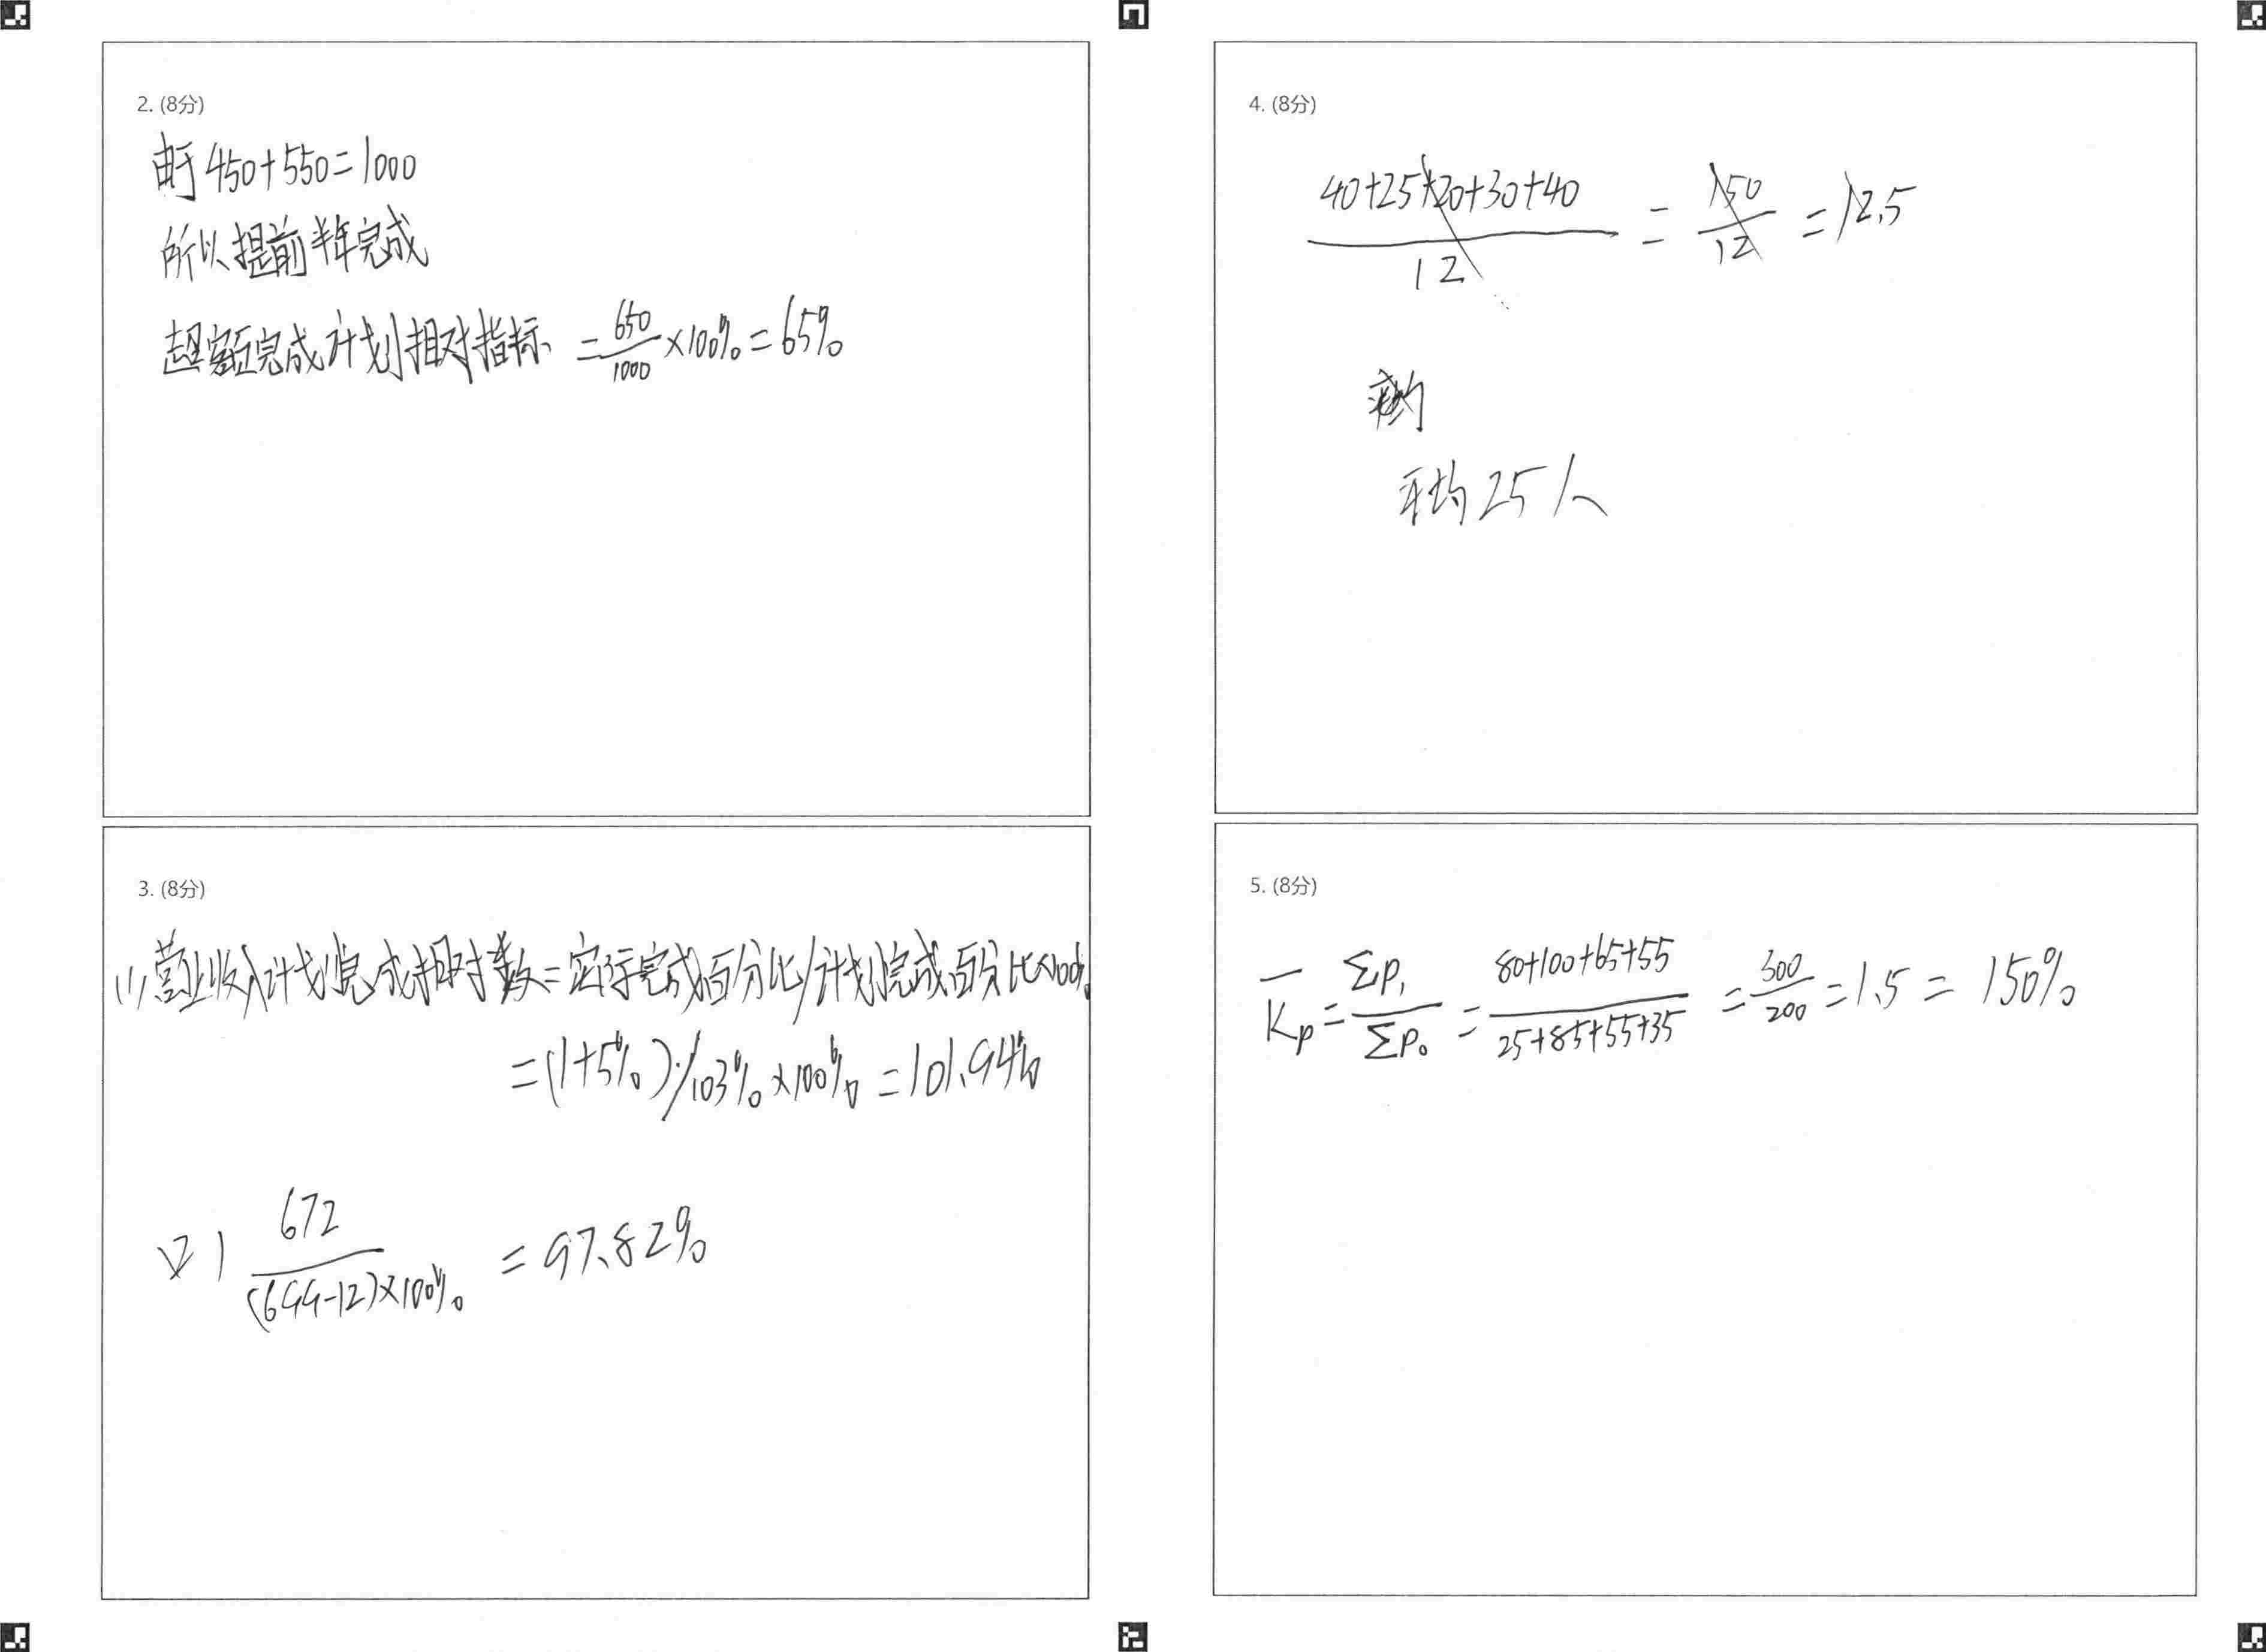 2. (8分)
由于 450+550=1000
所以提前半年完成
超额完成计划相对指标 = 650/1000 ×100% = 65%
3. (8分)
(1) 营业收入计划完成相对数 = 实际完成百分比/计划完成百分比×100%
= (1+5%) / 103% ×100% = 101.94%
(2) 672/(699-12)×100% = 97.82%
4. (8分)
40+25+20+30+40/12 = 150/12 = 12.5
平均 25人
5. (8分)
K̅p = ΣP₁/ΣP₀ = 80+100+65+55/25+85+55+35 = 300/200 = 1.5 = 150%